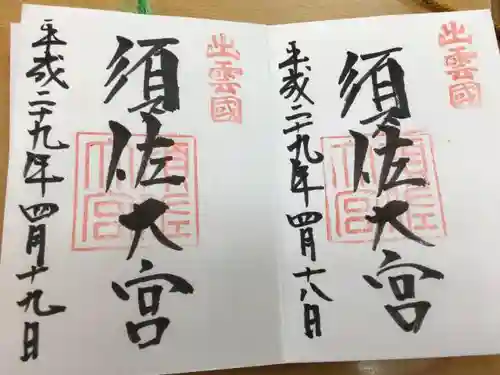 出雲國
須佐大宮
平成二十九年四月十八日
出雲國
須佐大宮
平成二十九年四月十九日